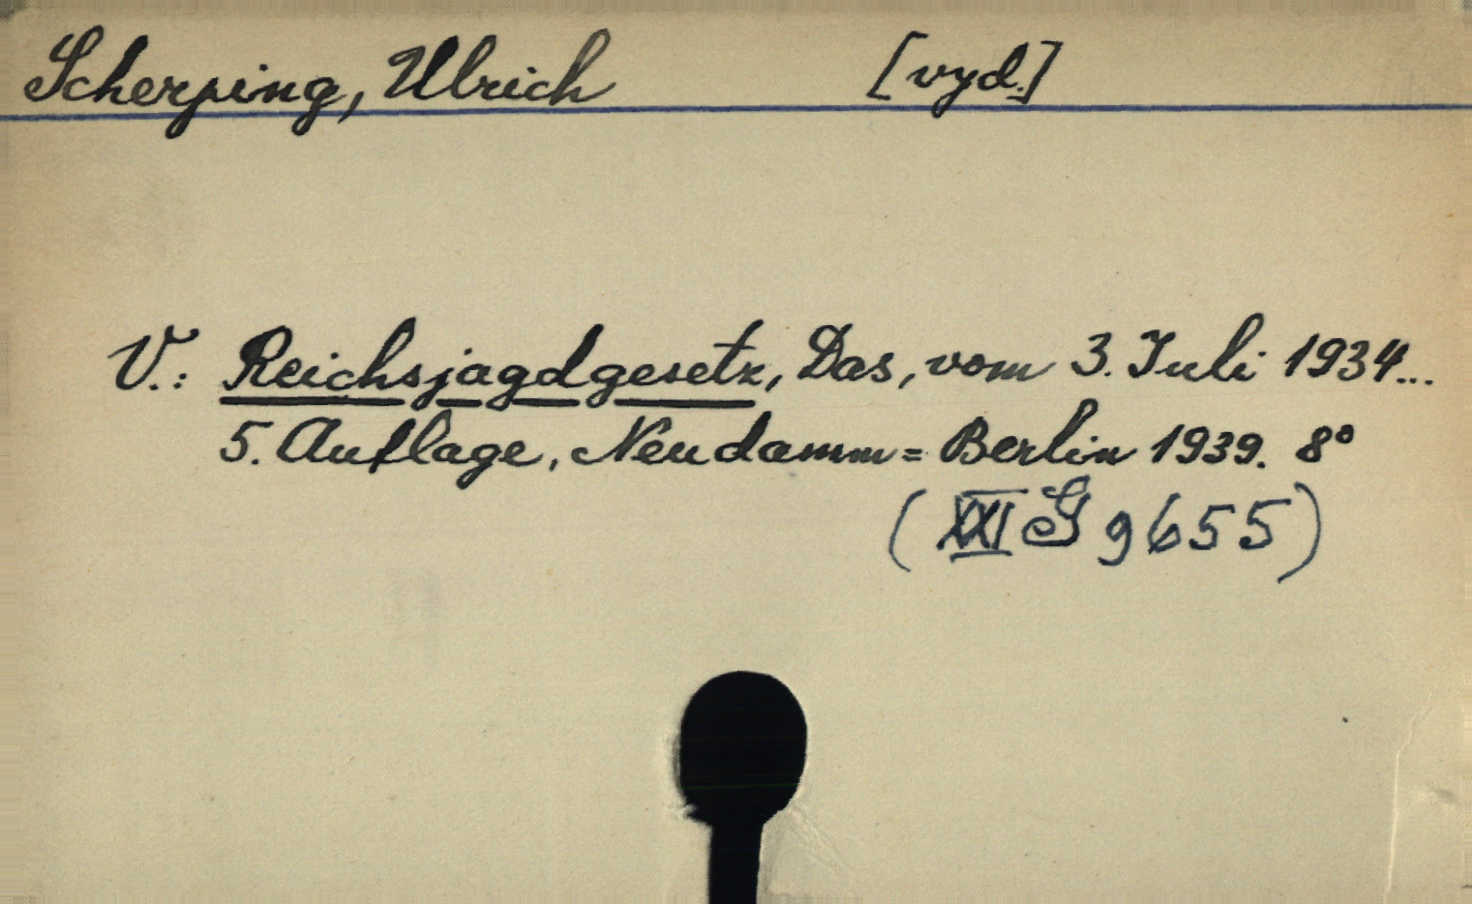 Scherping, Ulrich [vyd.]
V.: Reichsjagdgesetz, Das, vom 3. Juli 1934...
5. Auflage, Neudamm=Berlin 1939. 8°
(XXI G 9655)